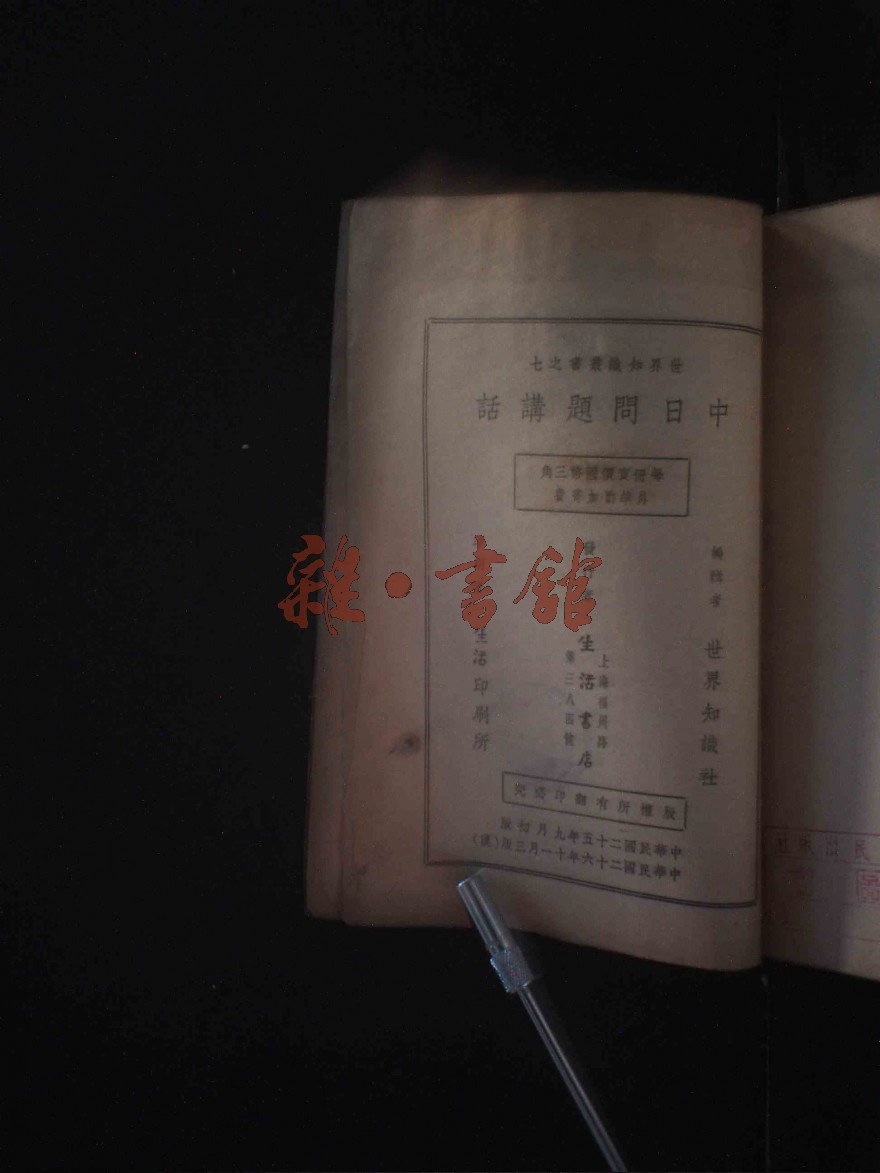 世界知識叢書之七
中日問題講話
每冊實價國幣三角
外埠酌加寄費
編輯者
世界知識社
發行者
生活書店
上海福州路
第三八四號
生活印刷所
版權所有翻印必究
中華民國二十五年九月初版
中華民國二十六年十一月三版(漢)
雜·書館